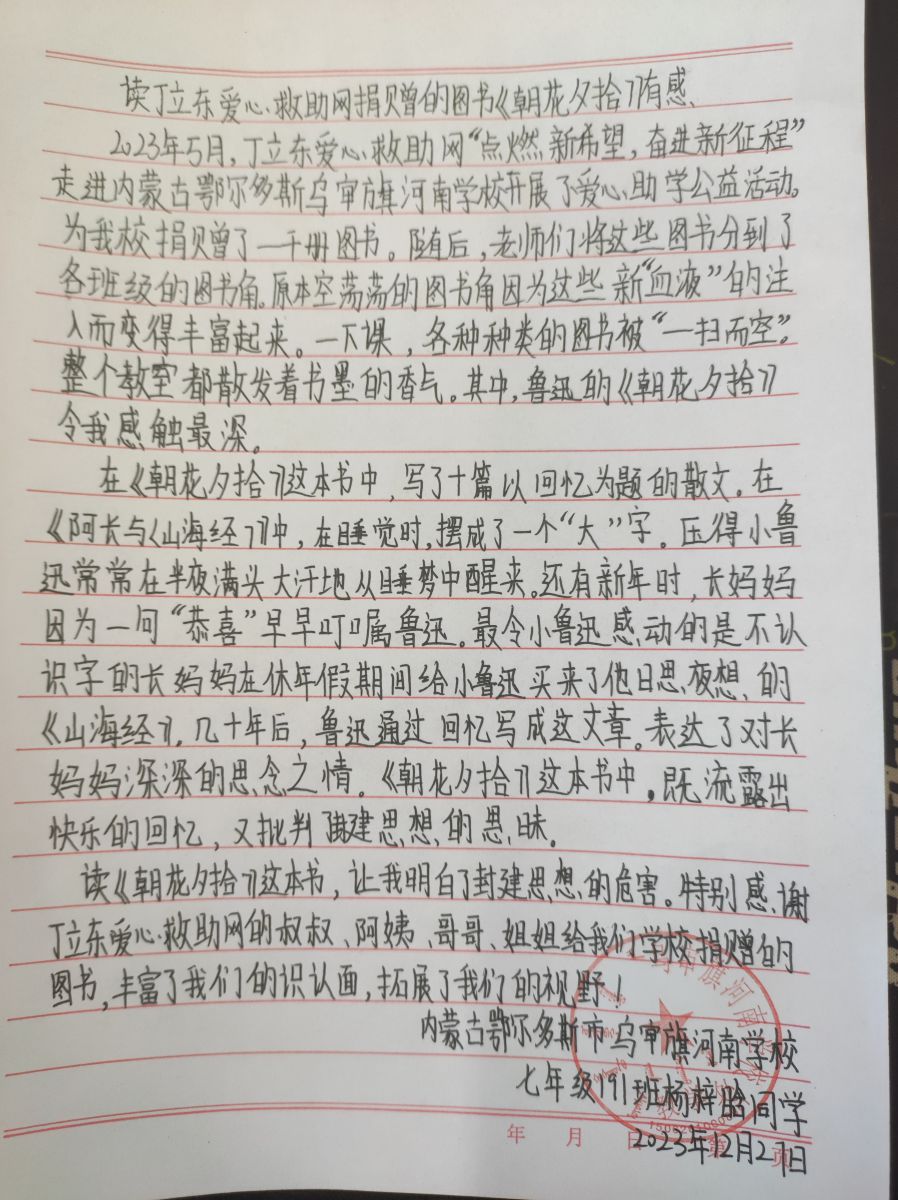 读丁立东爱心救助网捐赠的图书《朝花夕拾》有感
2023年5月，丁立东爱心救助网“点燃新希望，奋进新征程”
走进内蒙古鄂尔多斯乌审旗河南学校开展了爱心助学公益活动。
为我校捐赠了一千册图书。随后，老师们将这些图书分到了
各班级的图书角。原本空荡荡的图书角因为这些新“血液”的注
入而变得丰富起来。一下课，各种种类的图书被“一扫而空”。
整个教室都散发着书墨的香气。其中，鲁迅的《朝花夕拾》
令我感触最深。
在《朝花夕拾》这本书中，写了十篇以回忆为题的散文。在
《阿长与〈山海经〉》中，在睡觉时，摆成了一个“大”字。压得小鲁
迅常常在半夜满头大汗地从睡梦中醒来。还有新年时，长妈妈
因为一句“恭喜”早早叮嘱鲁迅。最令小鲁迅感动的是不认
识字的长妈妈在休年假期间给小鲁迅买来了他日思夜想的
《山海经》。几十年后，鲁迅通过回忆写成这文章。表达了对长
妈妈深深的思念之情。《朝花夕拾》这本书中，既流露出
快乐的回忆，又批判了封建思想的愚昧。
读《朝花夕拾》这本书，让我明白了封建思想的危害。特别感谢
丁立东爱心救助网的叔叔、阿姨、哥哥、姐姐给我们学校捐赠的
图书，丰富了我们的识认面，拓展了我们的视野！
内蒙古鄂尔多斯市乌审旗河南学校
七年级191班杨梓晗同学
2023年12月27日
年 月 日 第 页